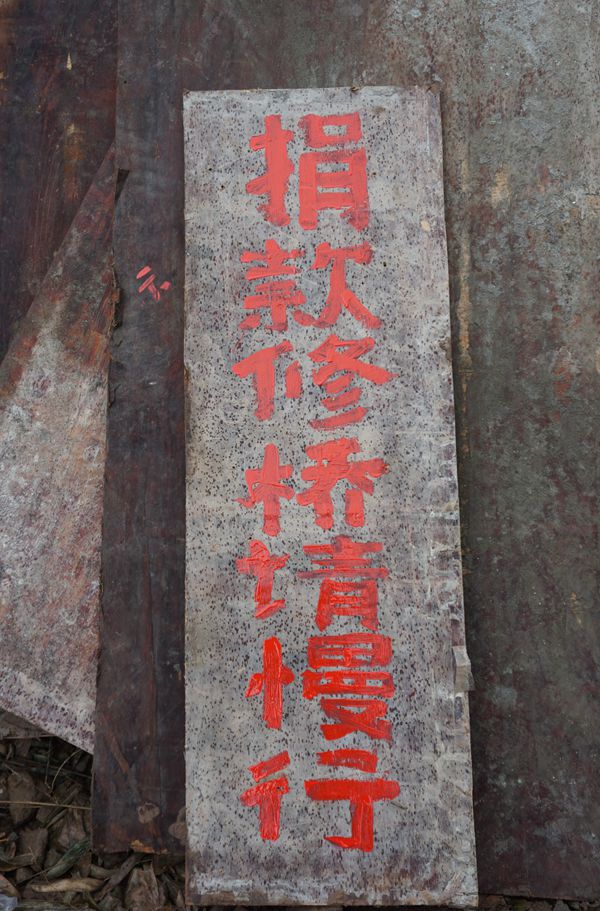 捐款修桥请慢行